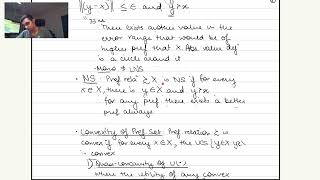 ||(y-x)|| ≤ ε and y≻x
There exists another value in the
error range that would be of
higher pref that X. Aka value dy'
is a such around it
- Mono ⇒ LNS
• NS : Pref relaⁿ ≿ X is NS if for every
x∈X, there is y∈X and y≻x
for any pref there exists a better
pref always
• Convexity of Pref Set : Pref relation ≿ is
convex if for every x∈X, the UCS {y∈X: y≿x}
is convex
1) Quasi-concavity of U(·)
where the utility of any convex